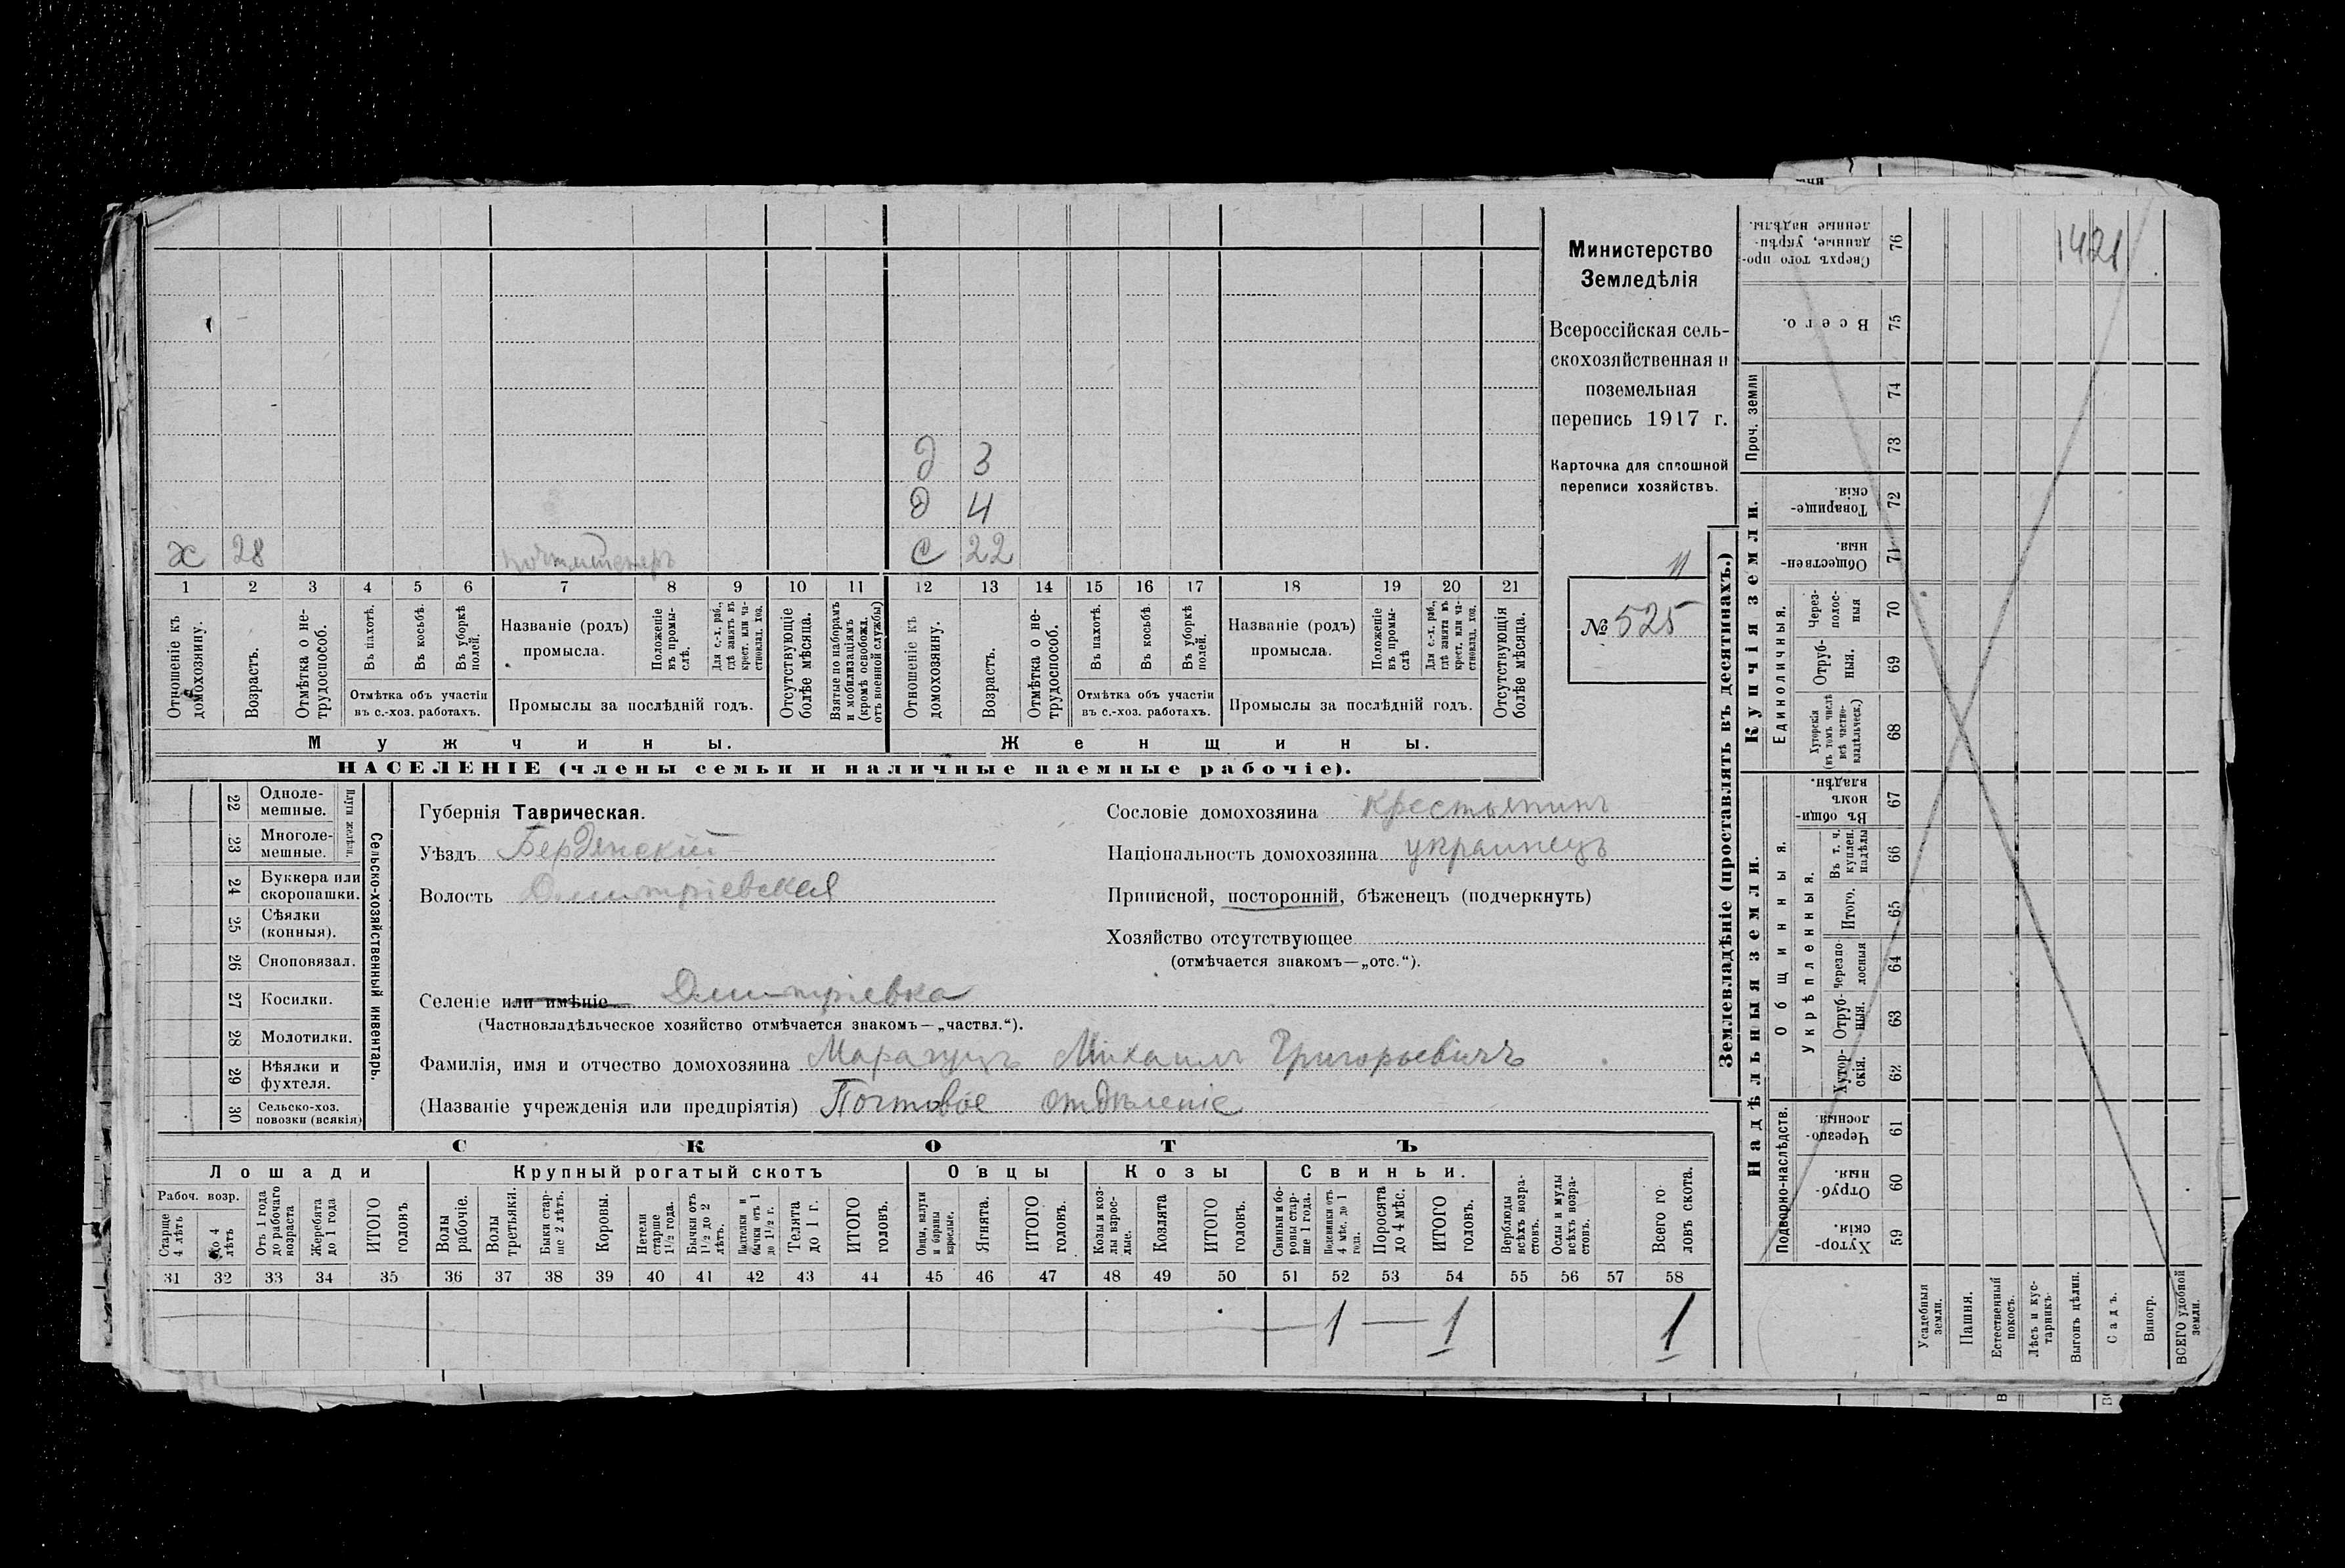 Министерство
Земледѣлія
Всероссійская сель-
скохозяйственная и
поземельная
перепись 1917 г.
Карточка для сплошной
переписи хозяйствъ.
11
№ 525
1421
д 3
д 4
х 28 почтмейстеръ с 22
1 2 3 4 5 6 7 8 9 10 11 12 13 14 15 16 17 18 19 20 21
Отношеніе къ домохозяину.
Возрастъ.
Отмѣтка о не-трудоспособ.
Въ пахотѣ.
Въ косьбѣ.
Въ уборкѣ полей.
Отмѣтка объ участіи
въ с.-хоз. работахъ.
Названіе (родъ)
промысла.
Положеніе въ промы-слѣ.
Для с.-х. раб., гдѣ занятъ въ крест. или ча-стновлад. хоз.
Промыслы за послѣдній годъ.
Отсутствующіе болѣе мѣсяца.
Взятые по наборамъ и мобилизаціямъ (кромѣ освобожд. отъ военной службы)
Отношеніе къ домохозяину.
Возрастъ.
Отмѣтка о не-трудоспособ.
Въ пахотѣ.
Въ косьбѣ.
Въ уборкѣ полей.
Отмѣтка объ участіи
въ с.-хоз. работахъ.
Названіе (родъ)
промысла.
Положеніе въ промы-слѣ
Для с.-х. раб., гдѣ занята въ крест. или ча-стновлад. хоз.
Промыслы за послѣдній годъ.
Отсутствующія болѣе мѣсяца.
Мужчины.
Женщины.
НАСЕЛЕНІЕ (члены семьи и наличные наемные рабочіе).
22 Одноле-мешные.
23 Многоле-мешные.
Плуги желѣзн.
24 Буккера или скоропашки.
25 Сѣялки (конныя).
26 Сноповязал.
27 Косилки.
28 Молотилки.
29 Вѣялки и фухтеля.
30 Сельско-хоз. повозки (всякія)
Сельско-хозяйственный инвентарь.
Губернія Таврическая.
Уѣздъ Бердянскій
Волость Дмитріевская
Сословіе домохозяина крестьянинъ
Національность домохозяина украинецъ
Приписной, посторонній, бѣженецъ (подчеркнуть)
Хозяйство отсутствующее
(отмѣчается знакомъ—„отс.“).
Селеніе или имѣніе Дмитріевка
(Частновладѣльческое хозяйство отмѣчается знакомъ—„частвл.“).
Фамилія, имя и отчество домохозяина Михаилъ Григорьевичъ
(Названіе учрежденія или предпріятія) Почтовое отдѣленіе
СКОТЪ
Лошади Крупный рогатый скотъ Овцы Козы Свиньи.
Рабоч. возр.
Старше 4 лѣтъ
До 4 лѣтъ
Отъ 1 года до рабочаго возраста
Жеребята до 1 года
ИТОГО головъ
Волы рабочіе.
Волы третьяки.
Быки стар-ше 2 лѣтъ.
Коровы.
Нетели старше 1½ года.
Бычки отъ 1½ до 2 лѣтъ.
Нетелки и бычки отъ 1 до 1½ г.
Телята до 1 г.
ИТОГО головъ.
Овцы, валухи и бараны взрослые.
Ягнята.
ИТОГО головъ.
Козы и коз-лы взрос-лые.
Козлята
ИТОГО головъ.
Свиньи и бо-ровы стар-ше 1 года.
Подсвинки отъ 4 мѣс. до 1 года.
Поросята до 4 мѣс.
ИТОГО головъ.
Верблюды всѣхъ возра-стовъ.
Ослы и мулы всѣхъ возра-стовъ.
Всего го-ловъ скота.
31 32 33 34 35 36 37 38 39 40 41 42 43 44 45 46 47 48 49 50 51 52 53 54 55 56 57 58
1 — 1 1
Землевладѣніе (проставлять въ десятинахъ.)
Надѣльныя земли.
Купчія земли.
Подворно-наслѣдств.
Общинныя.
Укрѣпленныя.
Единоличныя.
Проч. земли
59 Хутор-скія.
60 Отруб-ныя.
61 Черезпо-лосныя
62 Хутор-скія.
63 Отруб-ныя.
64 Черезпо-лосныя
65 Итого.
66 Въ т. ч. куплен. надѣлы
67 Въ общин-номъ владѣн.
68 Хуторскія (въ томъ числѣ всѣ частно-владѣльческ.)
69 Отруб-ныя.
70 Через-полос-ныя
71 Обществен-ныя.
72 Товарище-скія.
73
74
75 Всего.
76 Сверхъ того про-данные, укрѣп-ленные надѣлы.
Усадебныя земли.
Пашня.
Естественный покосъ.
Лѣсъ и кус-тарникъ.
Выгонъ цѣлин.
Садъ.
Виногр.
ВСЕГО удобной земли.